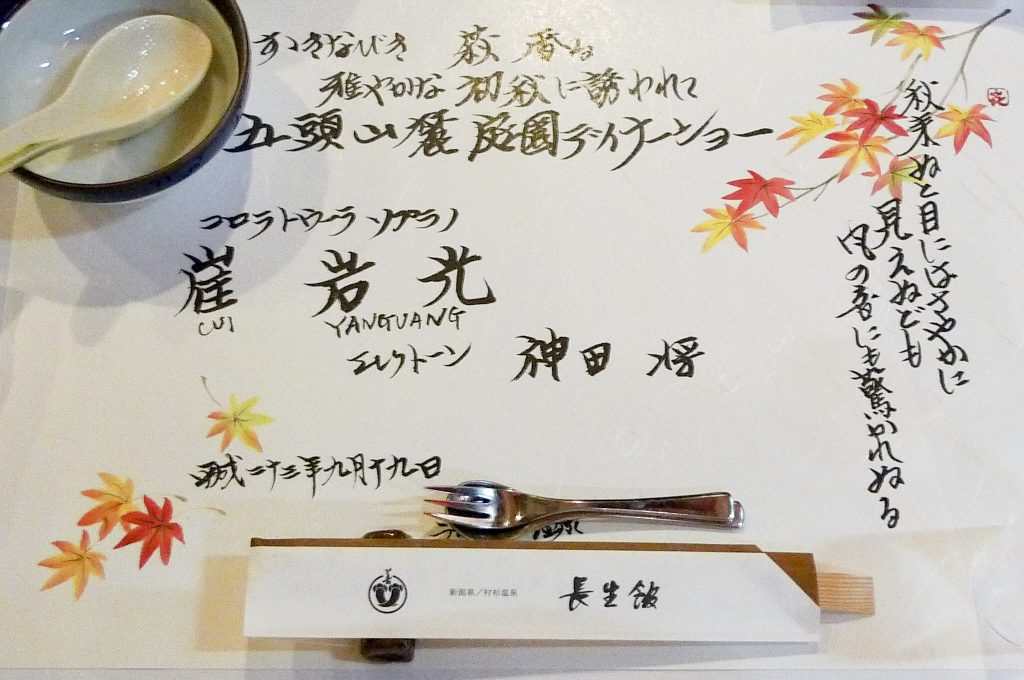 すすきなびき 萩香る
雅やかな初秋に誘われて
五頭山麓庭園ディナーショー
コロラトゥーラ ソプラノ
崔 岩光
CUI YANGUANG
エレクトーン 神田 将
平成二十三年九月十九日
秋来ぬと目にはさやかに
見えねども
風の音にも驚かれぬる
新潟県/村杉温泉
長生館